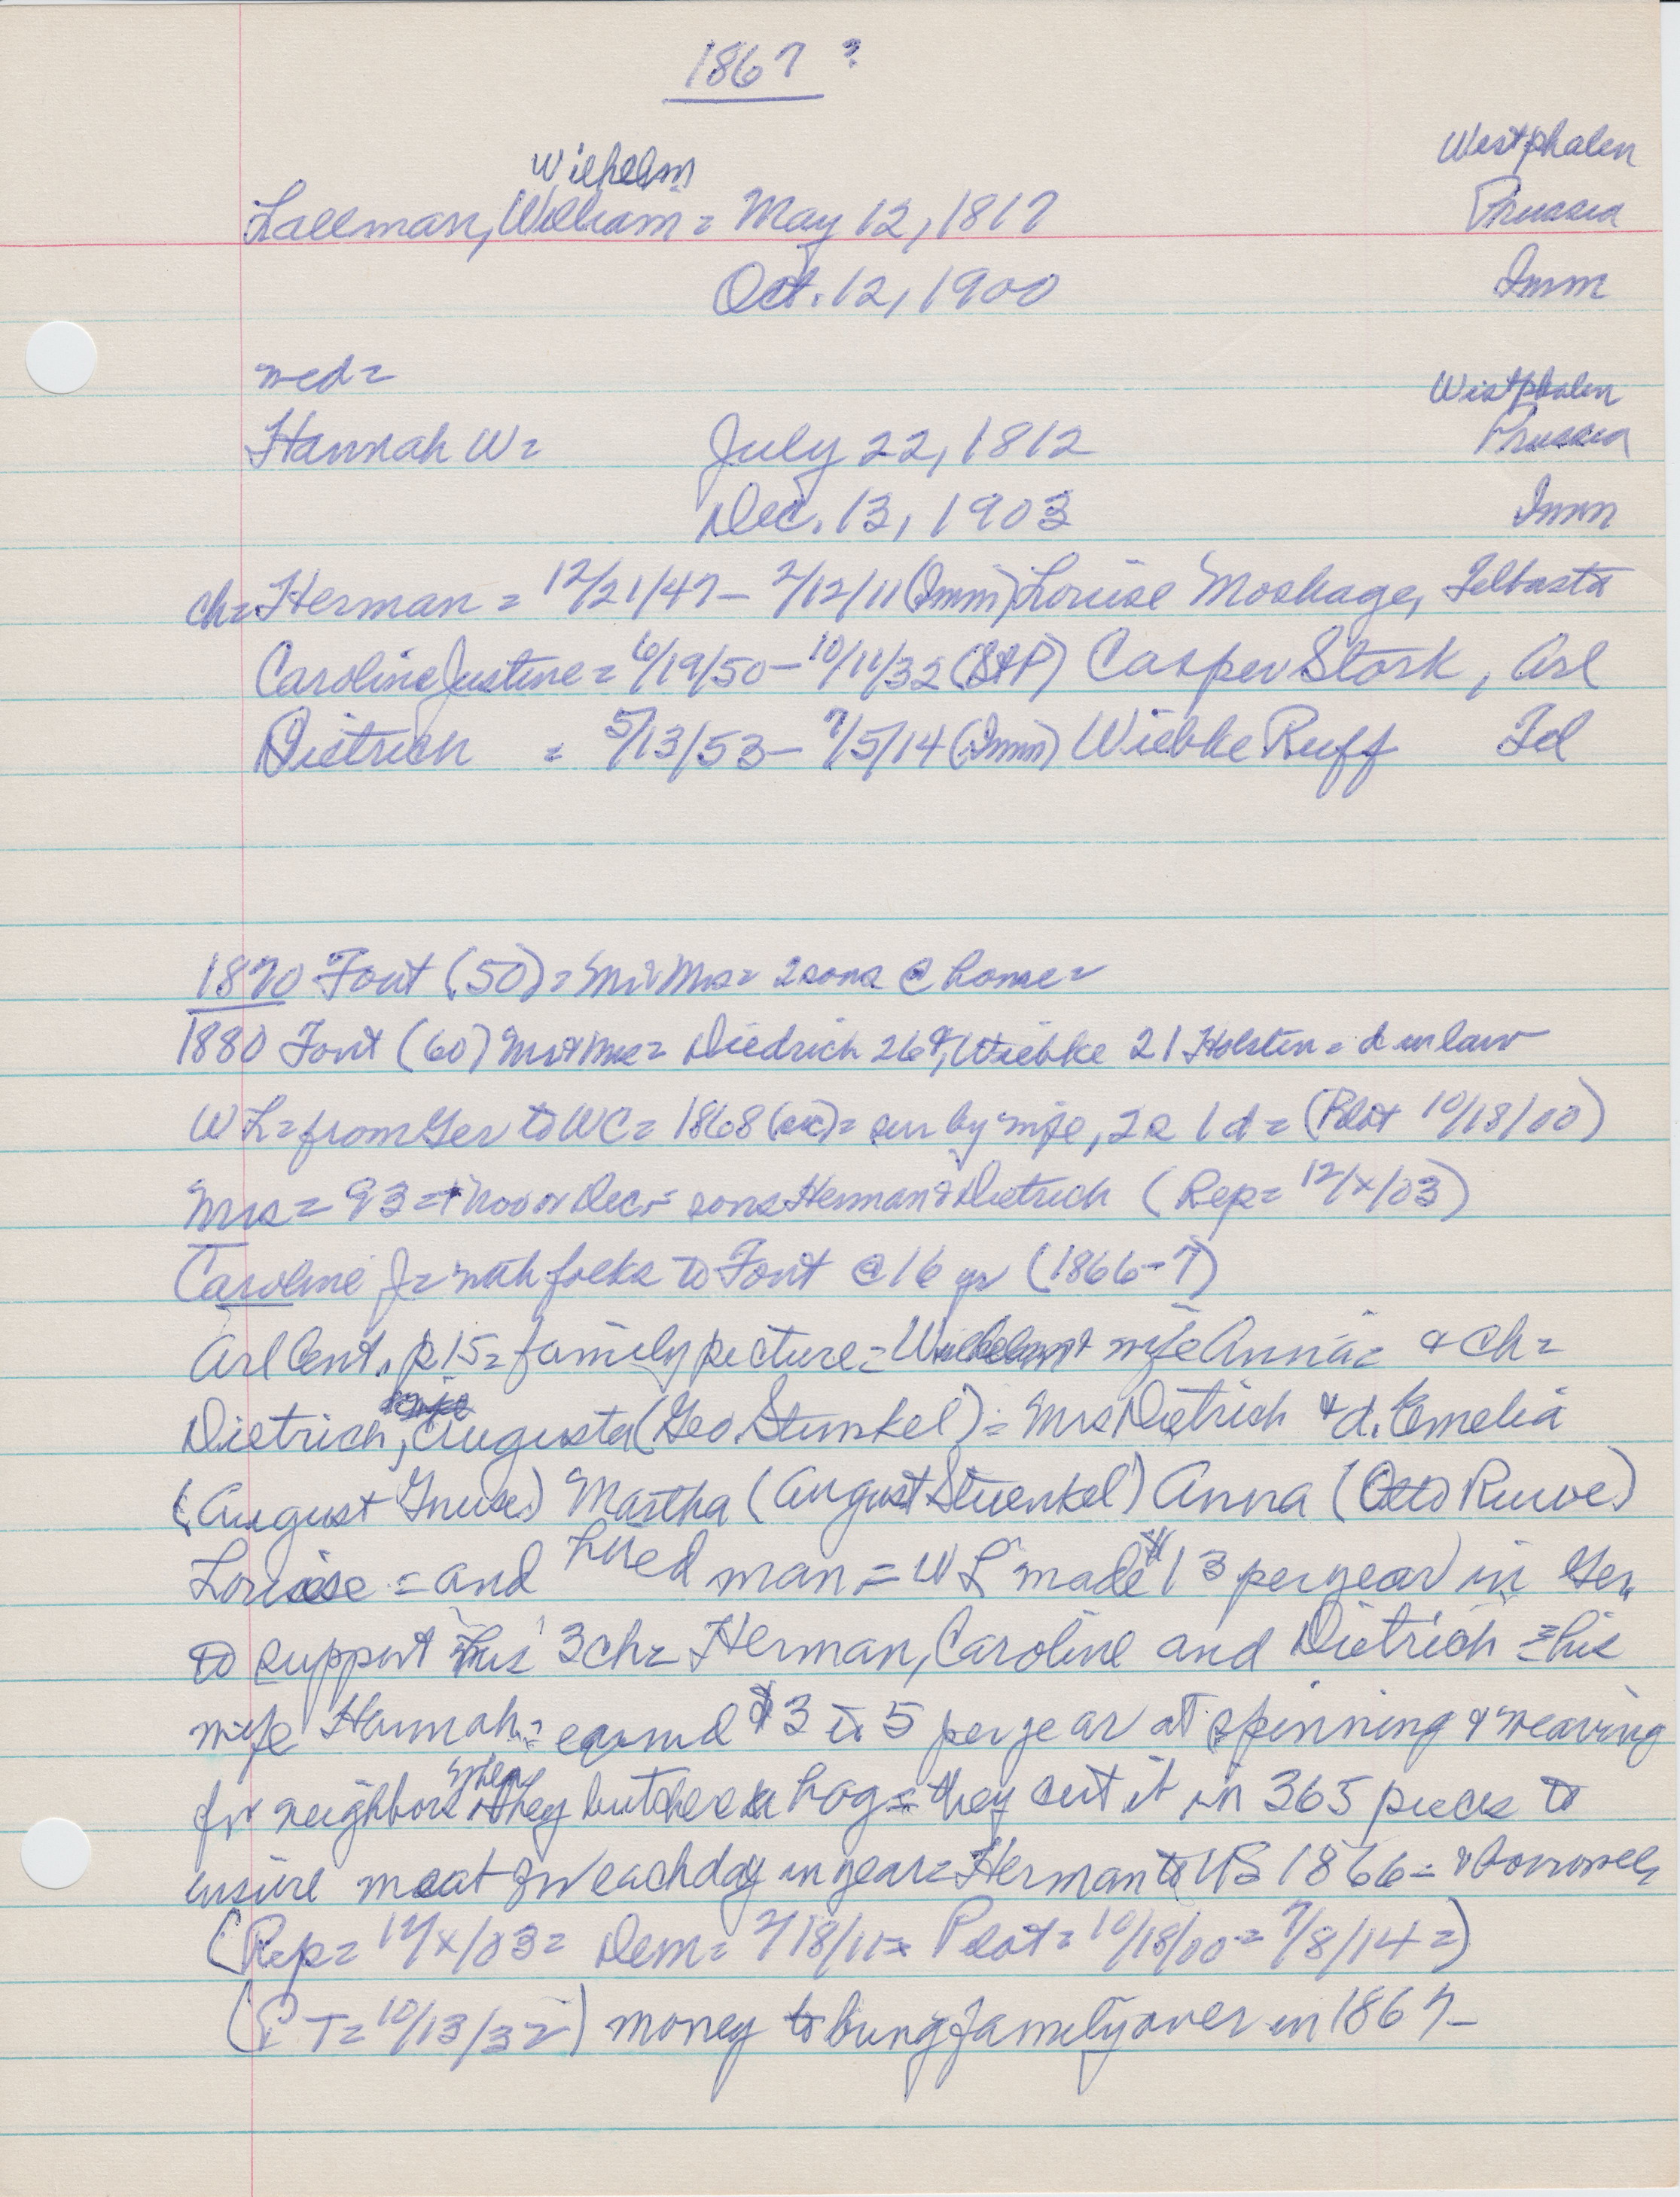 1867 ?
Westphalen
Wilhelm
Lallman, William = May 12, 1817 Prussia
Oct. 12, 1900 Imm
med =
Westphalen
Hannah W = July 22, 1812 Prussia
Dec. 13, 1903 Imm
ch = Herman = 12/21/47 - 2/12/11 (Imm) Louise Moshage, Telbasta
Caroline Justine = 6/19/50 - 10/11/32 (StP) Casper Stork, Arl
Dietrich = 5/13/53 - 7/5/14 (Imm) Wiebke Ruff Tel
1870 Font (50) = Mr Mrs = 2 sons @ home =
1880 Font (60) Mr & Mrs = Diedrich 26 &, Wiebke 21 Holsten = d in law
WL = from Ger to WC = 1868 (sic) = sur by wife, 2 s 1 d = (Pilot 10/18/00)
Mrs = 93 = + Nov or Dec = sons Herman & Dietrich (Rep = 12/x/03)
Caroline J = with folks to Font @ 16 yr (1866-7)
Arl Cent. p 15 = family picture = Wilhelm & wife Anna = & ch =
Dietrich, Augusta (Geo. Stunkel) = Mrs Dietrich & d. Emelia
(August Gnuse) Martha (August Stuenkel) Anna (Otto Ruwe)
Louise = and hired man = WL made $13 per year in Ger
to support his 3 ch = Herman, Caroline and Dietrich = his
wife Hannah = earned $3 to 5 per year at spinning & weaving
for neighbors when they butchered a hog = they cut it in 365 pieces to
ensure meat for each day in year = Herman to US 1866 = & borrowed
(Rep = 12/x/03 = Dem = 2/18/11 = Pilot = 10/18/00 = 7/8/14 =)
(PT = 10/13/32) money to bring family over in 1867 -